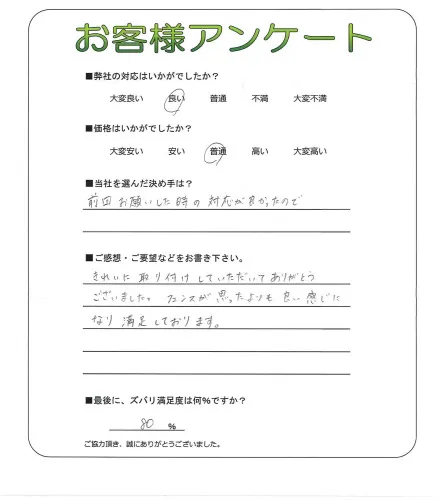 お客様アンケート
■弊社の対応はいかがでしたか？
大変良い 良い 普通 不満 大変不満
■価格はいかがでしたか？
大変安い 安い 普通 高い 大変高い
■当社を選んだ決め手は？
前回お願いした時の対応が良かったので
■ご感想・ご要望などをお書き下さい。
きれいに取り付けしていただいてありがとう
ございました。フェンスが思ったよりも良い感じに
なり満足しております。
■最後に、ズバリ満足度は何%ですか？
80 %
ご協力頂き、誠にありがとうございました。